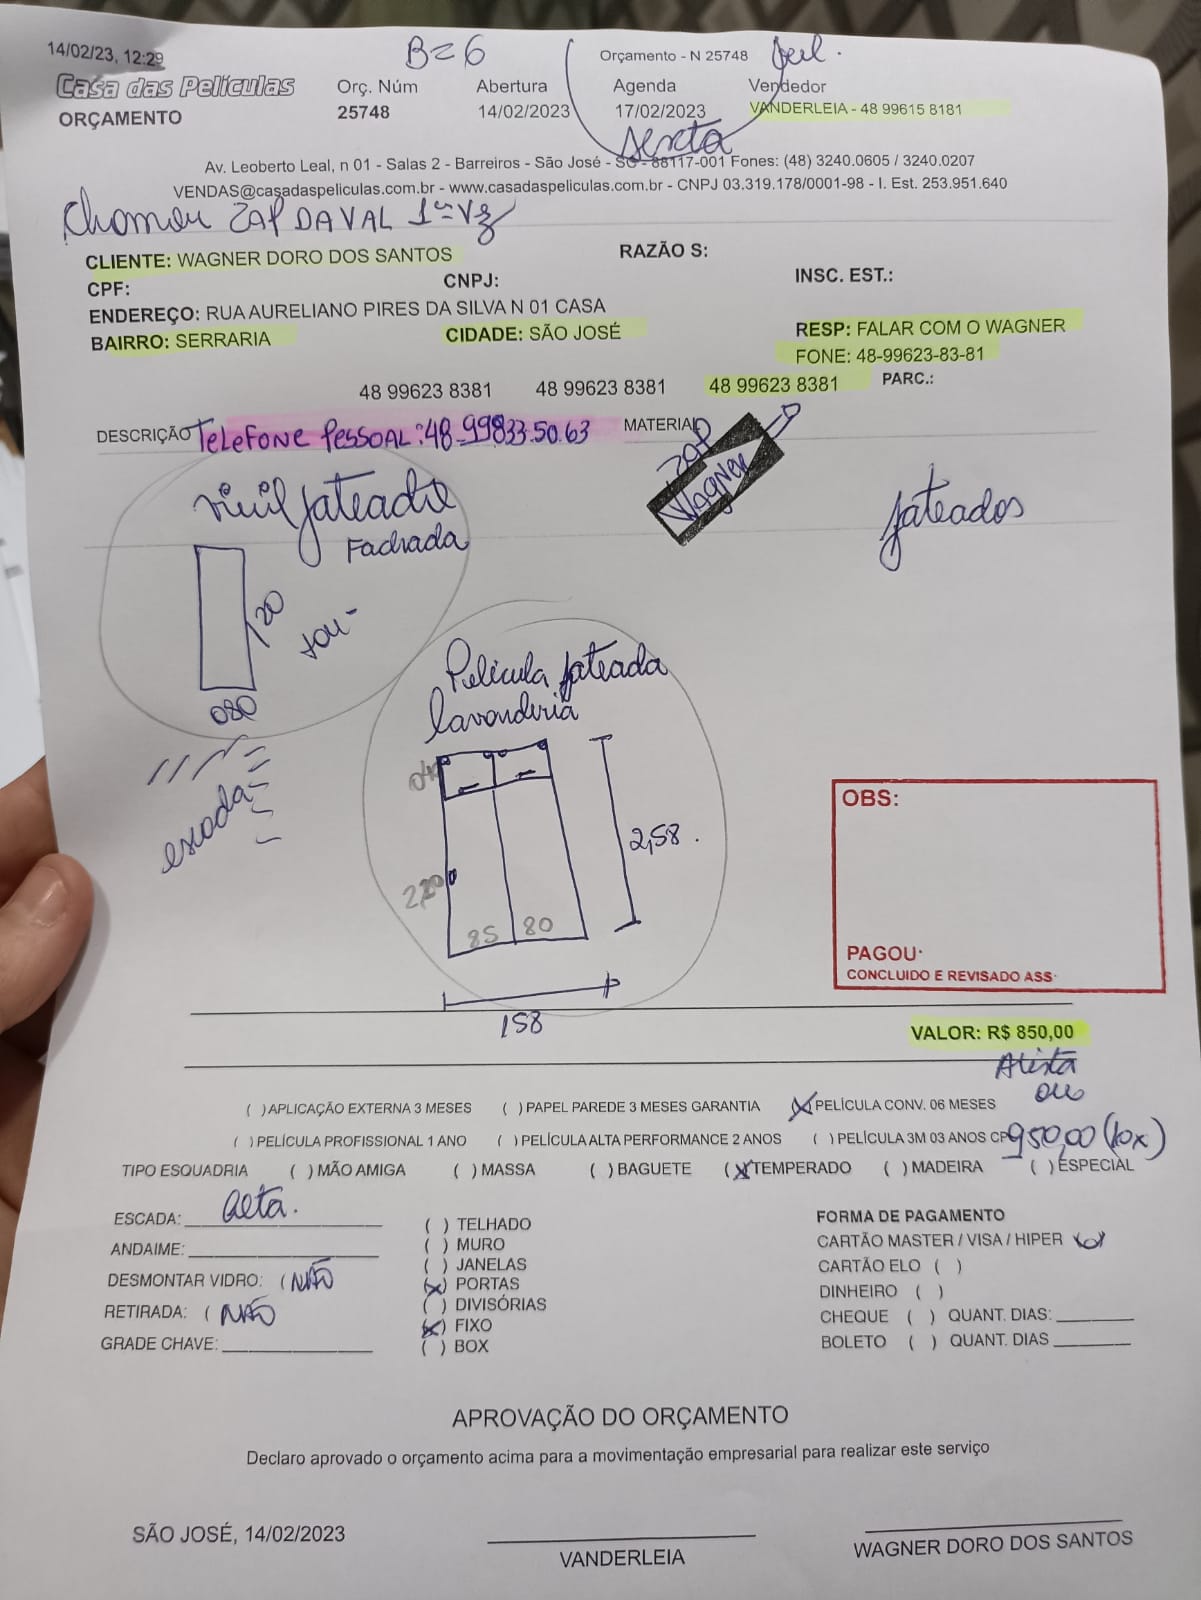 14/02/23, 12:29
B=6
Orçamento - N 25748
Casa das Películas
Orç. Núm
Abertura
Agenda
Vendedor
ORÇAMENTO
25748
14/02/2023
17/02/2023
VANDERLEIA - 48 99615 8181
Sexta
Av. Leoberto Leal, n 01 - Salas 2 - Barreiros - São José - SC - 88117-001 Fones: (48) 3240.0605 / 3240.0207
VENDAS@casadaspeliculas.com.br - www.casadaspeliculas.com.br - CNPJ 03.319.178/0001-98 - I. Est. 253.951.640
ZAP DA VAL
CLIENTE: WAGNER DORO DOS SANTOS
RAZÃO S:
CPF:
CNPJ:
INSC. EST.:
ENDEREÇO: RUA AURELIANO PIRES DA SILVA N 01 CASA
BAIRRO: SERRARIA
CIDADE: SÃO JOSÉ
RESP: FALAR COM O WAGNER
FONE: 48-99623-83-81
48 99623 8381 48 99623 8381 48 99623 8381 PARC.:
DESCRIÇÃO Telefone Pessoal: 48-99833.50.63
MATERIAL
zap
Wagner
jateados
vinil jateado
Fachada
120
080
escada
Película jateada
lavanderia
040
2,58.
2,20
85
80
158
OBS:
PAGOU:
CONCLUIDO E REVISADO ASS:
VALOR: R$ 850,00
Avista
ou
( ) APLICAÇÃO EXTERNA 3 MESES ( ) PAPEL PAREDE 3 MESES GARANTIA (X) PELÍCULA CONV. 06 MESES
( ) PELÍCULA PROFISSIONAL 1 ANO ( ) PELÍCULA ALTA PERFORMANCE 2 ANOS ( ) PELÍCULA 3M 03 ANOS CP 950,00 (10x)
TIPO ESQUADRIA ( ) MÃO AMIGA ( ) MASSA ( ) BAGUETE (X) TEMPERADO ( ) MADEIRA ( ) ESPECIAL
ESCADA: alta.
ANDAIME:
DESMONTAR VIDRO: ( NÃO
RETIRADA: ( NÃO
GRADE CHAVE:
( ) TELHADO
( ) MURO
( ) JANELAS
(X) PORTAS
( ) DIVISÓRIAS
(X) FIXO
( ) BOX
FORMA DE PAGAMENTO
CARTÃO MASTER / VISA / HIPER (X)
CARTÃO ELO ( )
DINHEIRO ( )
CHEQUE ( ) QUANT. DIAS:
BOLETO ( ) QUANT. DIAS
APROVAÇÃO DO ORÇAMENTO
Declaro aprovado o orçamento acima para a movimentação empresarial para realizar este serviço
SÃO JOSÉ, 14/02/2023
VANDERLEIA
WAGNER DORO DOS SANTOS